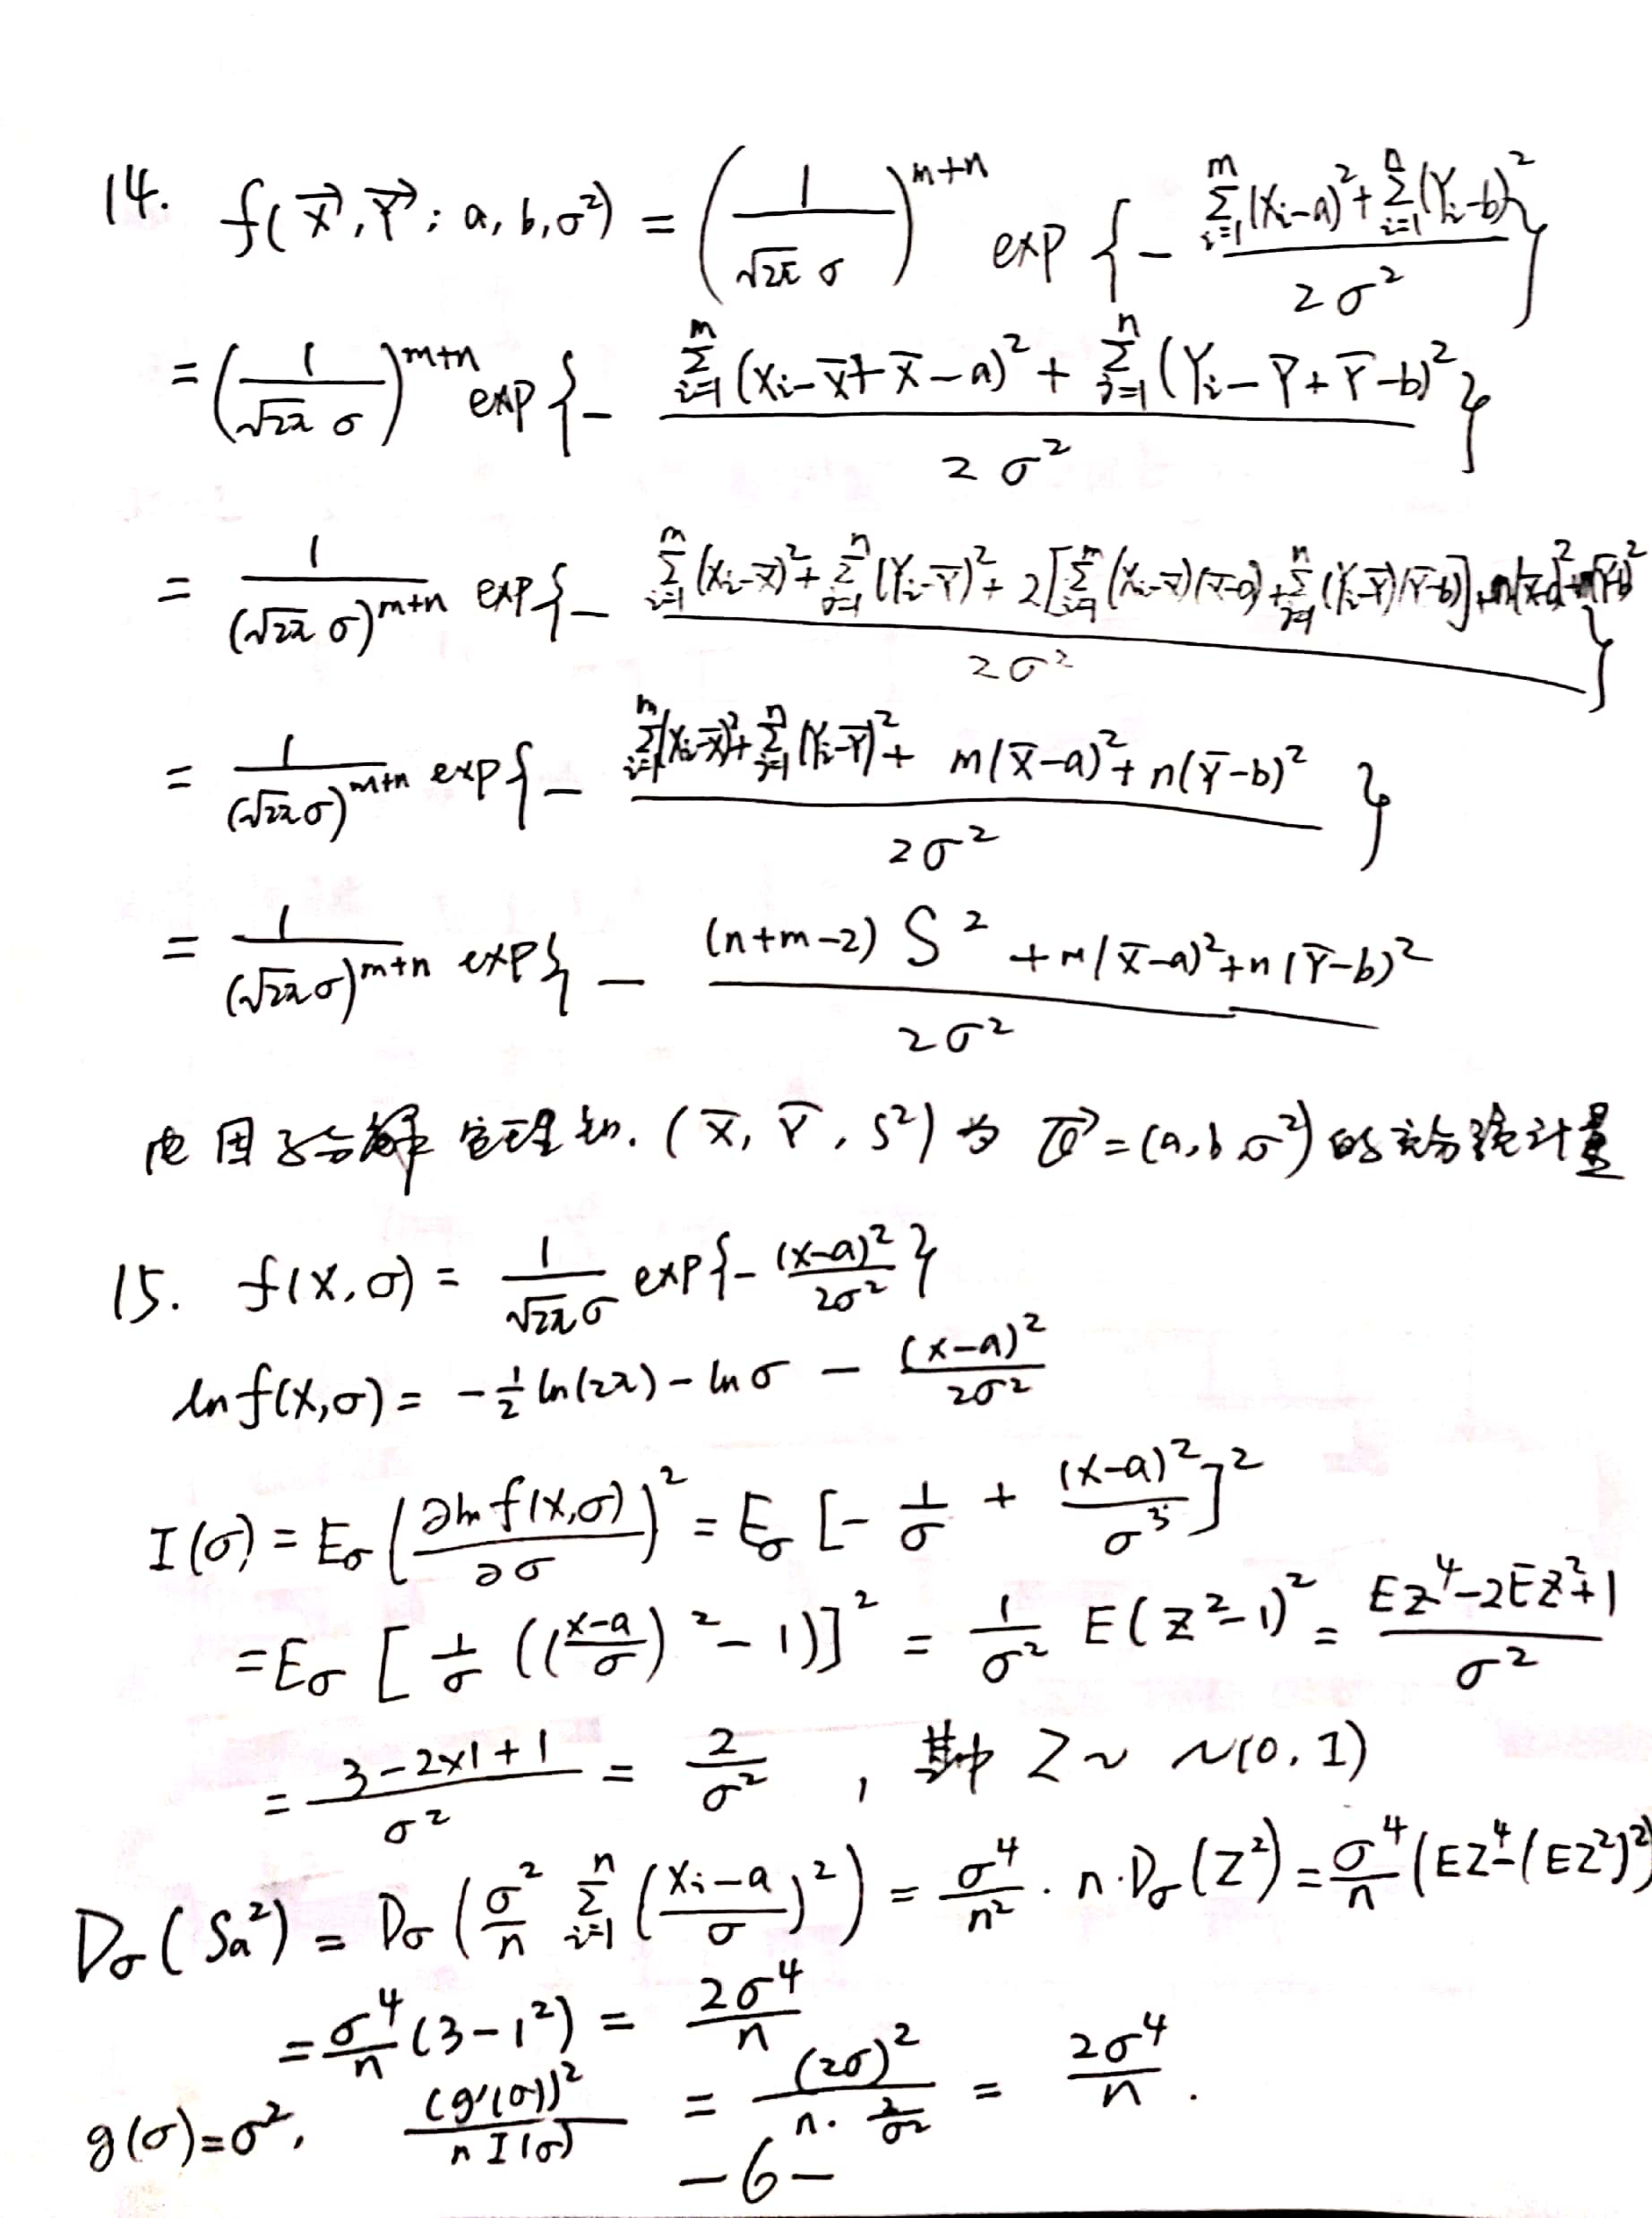 14. f(X⃗, Y⃗; a, b, σ²) = (1/(√2π σ))^(m+n) exp{-(∑_{i=1}^m (Xi-a)² + ∑_{i=1}^n (Yi-b)²)/(2σ²)}
= (1/(√2π σ))^(m+n) exp{-(∑_{i=1}^m (Xi-X̄+X̄-a)² + ∑_{j=1}^n (Yi-Ȳ+Ȳ-b)²)/(2σ²)}
= 1/(√2π σ)^(m+n) exp{-(∑_{i=1}^m (Xi-X̄)² + ∑_{j=1}^n (Yi-Ȳ)² + 2[∑_{i=1}^m (Xi-X̄)(X̄-a) + ∑_{j=1}^n (Yi-Ȳ)(Ȳ-b)] + m(X̄-a)² + n(Ȳ-b)²)/(2σ²)}
= 1/(√2π σ)^(m+n) exp{-(∑_{i=1}^m (Xi-X̄)² + ∑_{j=1}^n (Yi-Ȳ)² + m(X̄-a)² + n(Ȳ-b)²)/(2σ²)}
= 1/(√2π σ)^(m+n) exp{-((n+m-2)S² + m(X̄-a)² + n(Ȳ-b)²)/(2σ²)
由因子分解定理知. (X̄, Ȳ, S²) 为 θ⃗=(a,b,σ²) 的充分统计量
15. f(X,σ) = 1/(√2π σ) exp{-(X-a)²/(2σ²)}
ln f(X,σ) = -½ ln(2π) - ln σ - (X-a)²/(2σ²)
I(σ) = Eσ(∂ln f(X,σ)/∂σ)² = Eσ[-1/σ + (X-a)²/σ³]²
= Eσ[1/σ (((X-a)/σ)² - 1)]² = 1/σ² E(Z²-1)² = (EZ⁴-2EZ²+1)/σ²
= (3-2×1+1)/σ² = 2/σ² , 其中 Z ~ N(0, 1)
Dσ(Sa²) = Dσ(σ²/n ∑_{i=1}^n ((Xi-a)/σ)²) = σ⁴/n² · n·Dσ(Z²) = σ⁴/n (EZ⁴-(EZ²)²)
= σ⁴/n (3-1²) = 2σ⁴/n
g(σ)=σ², (g'(σ))²/(n I(σ)) = (2σ)²/(n·2/σ²) = 2σ⁴/n .
-6-